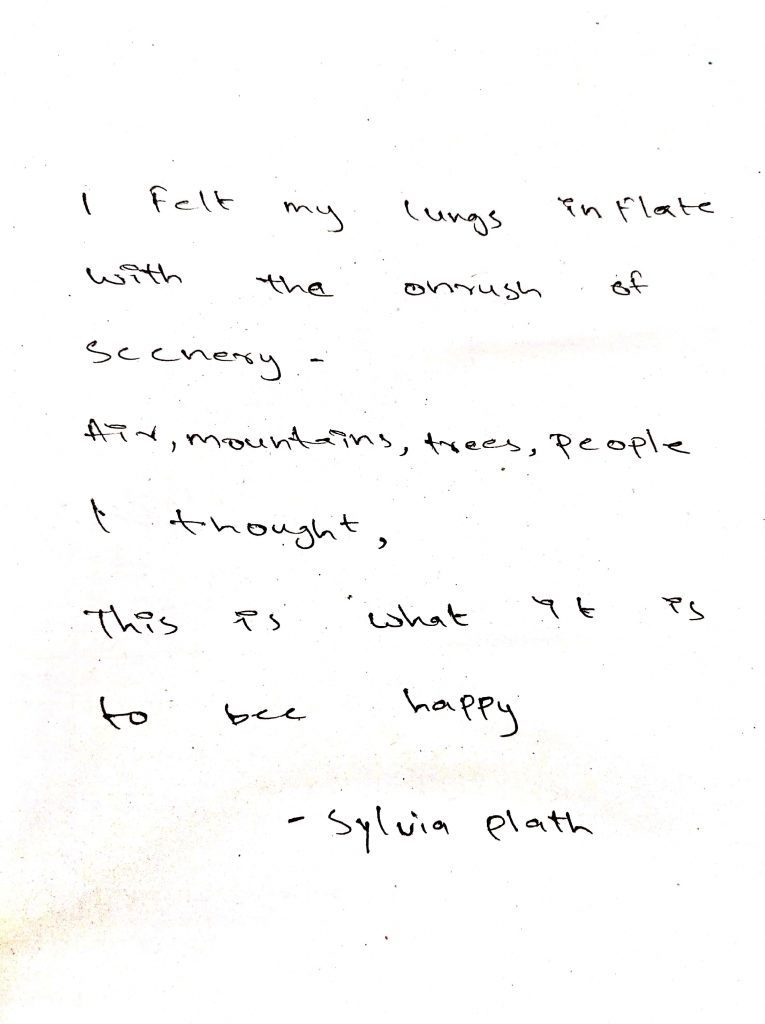 I felt my lungs inflate
with the onrush of
Scenery -
Air, mountains, trees, People
I thought,
This is what it is
to bee happy
- Sylvia plath